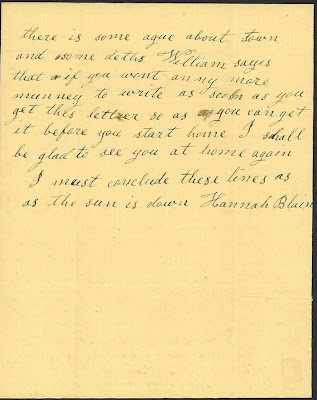 there is some ague about town
and some deths William sayes
that if you wont anny more
munney to write as soon as you
get this letter so as you can get
it before you start home I shall
be glad to see you at home again
I must conclude these lines as
as the sun is down Hannah Blain